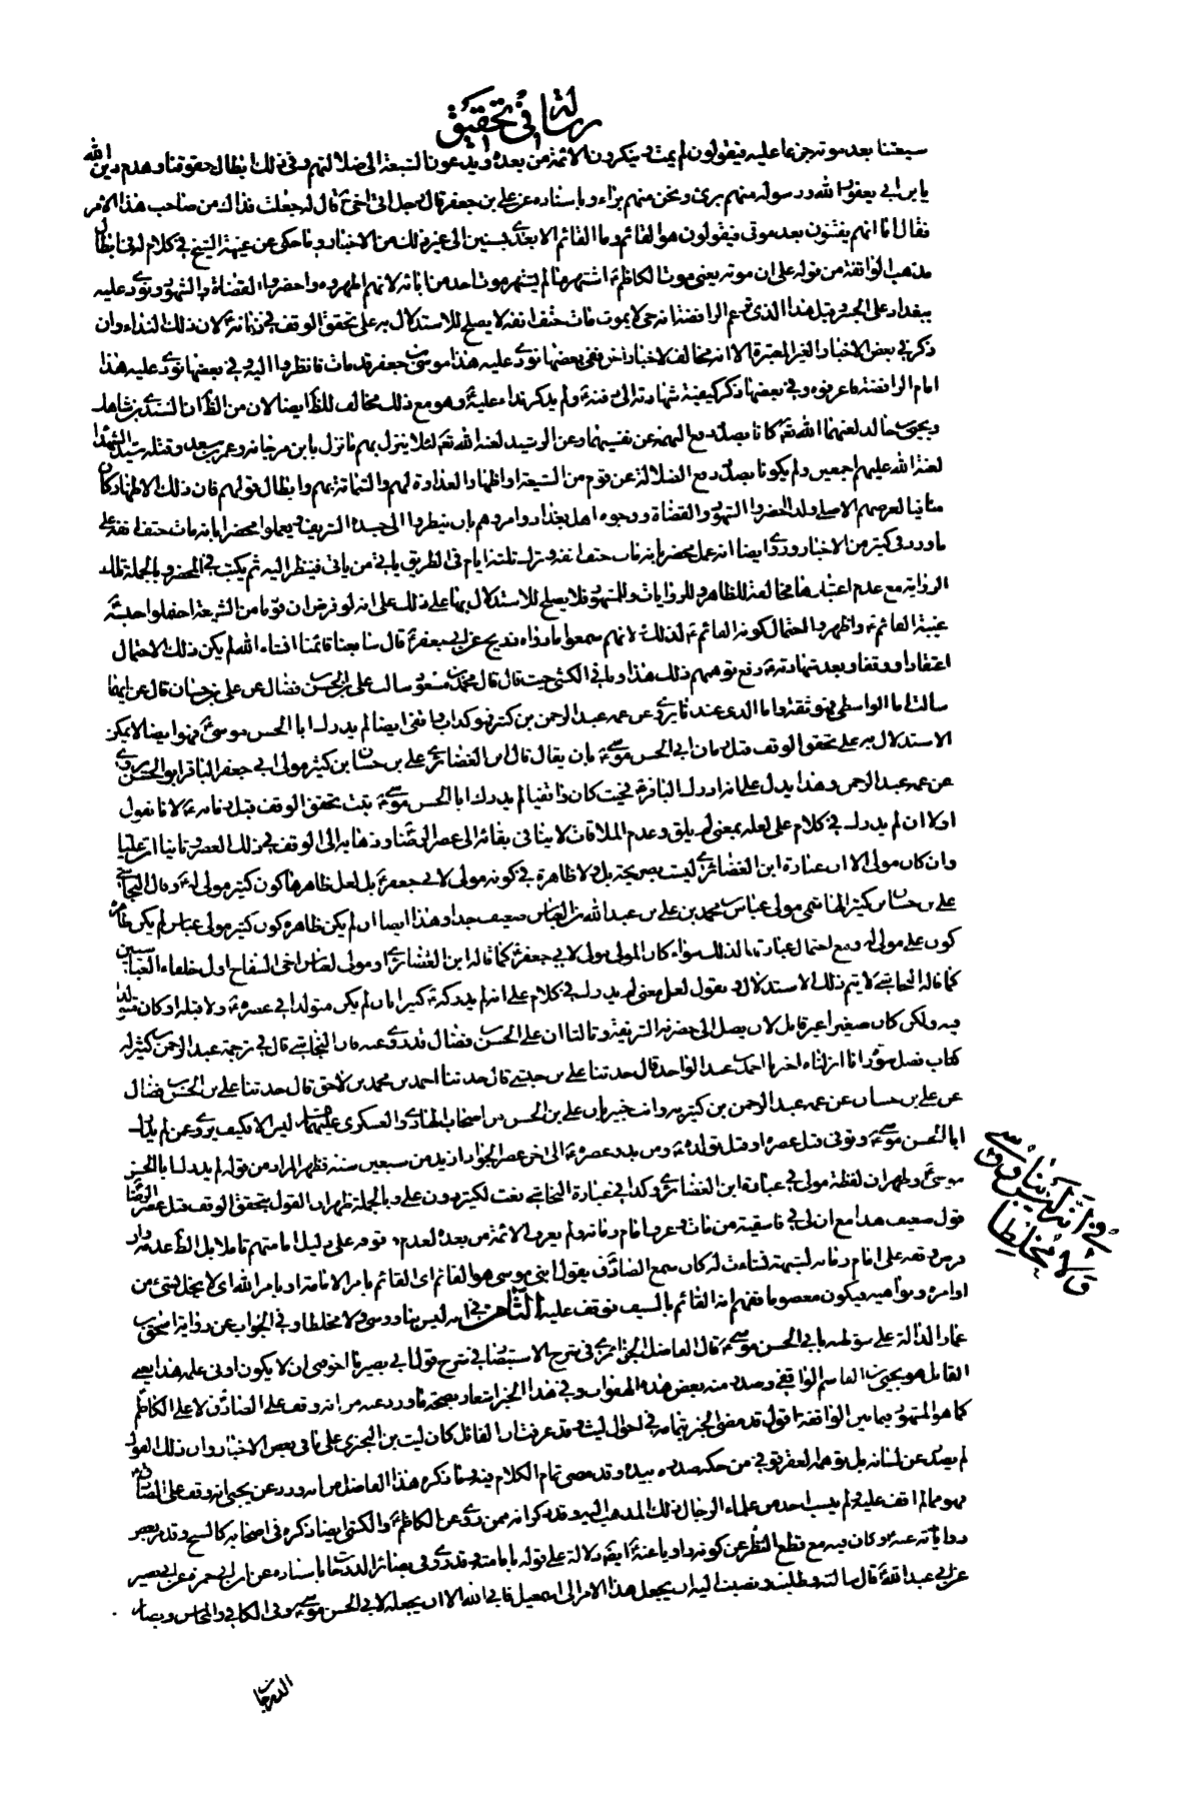 رسالة في تحقيق
شيعتنا بعد موته جزعا عليه فيقولون لم يمت وينكرون الائمة من بعده ويدعون الشيعة الى ضلالتهم وفي ذلك ابطال حقوقنا وهدم دين الله
يا بن ابي يعفور الله ورسوله منهم برئ ونحن منهم براء وباسناده عن علي بن جعفر قال رجل اتى اخي قال له جعلت فداك من صاحب هذا الامر
فقال اما انهم يفتنون بعد موتي فيقولون هو القائم وما القائم الا بعدي بسنين الى غير ذلك من الاخبار وما حكى عن غيبة الشيخ في كلام له في ابطال
مذهب الواقفة من قوله على ان موته يعني موت الكاظم ع اشتهر ما لم يشتهر موت احد من ابائه لانهم اظهروه واحضروا القضاة والشهود ونودي عليه
ببغداد على الجسر وقيل هذا الذي تزعم الرافضة انه حي لا يموت مات حتف انفه لا يصلح للاستدلال به على تحقق الوقف في زمانه ع لان ذلك النداء وان
ذكر في بعض الاخبار الغير المعتبرة الا انه مخالف لاخبار اخر ففي بعضها نودي عليه هذا موسى بن جعفر قد مات فانظروا اليه وفي بعضها نودي عليه هذا
امام الرافضة فاعرفوه وفي بعضها ذكر كيفية شهادته الى دفنه ولم يذكر نداء عليه ع وهو مع ذلك مخالف للظ ايضا لان من الظ ان السندي بن شاهك
ويحيى بن خالد لعنهما الله تع كانا بصدد دفع التهمة عن نفسيهما وعن الرشيد لعنه الله تع لئلا ينزل بهم ما نزل بابن مرجانة وعمر بن سعد وقتلة سيد الشهداء
لعنة الله عليهم اجمعين ولم يكونا بصدد دفع الضلالة عن قوم من الشيعة او اظهار العداوة لهم والشماتة بهم وابطال قولهم فان ذلك الاظهار كان
منافيا لغرضهم الاصلي ولذا احضروا الشهود والقضاة ووجوه اهل بغداد وامروهم بان ينظروا الى جسده الشريف ويعملوا محضرا بانه مات حتف انفه على
ما ورد في كثير من الاخبار وروي ايضا انه عمل محضر بانه مات حتف انفه وترك ثلثة ايام في الطريق ياتي من ياتي فينظر اليه ثم يكتب في المحضر وبالجملة تلك
الرواية مع عدم اعتبارها مخالفة للظاهر وللروايات وللمشهور فلا يصلح للاستدلال بها على ذلك على انه لو فرض ان قوما من الشيعة احتملوا حينئذ
غيبة القائم ع واظهروا احتمال كونه القائم ع لذلك لانهم سمعوا ما رواه ذريح عن ابي جعفر ع قال سابعنا قائمنا انشاء الله لم يكن ذلك الاحتمال
اعتقادا ووقفا وبعد شهادته ع دفع توهمهم ذلك هذا وما في الكشي حيث قال قال محمد بن مسعود سالت علي بن الحسن بن فضال عن علي بن حسان قال عن ايهما
سالت اما الواسطي فهو ثقة واما الذي عندنا يروي عن عمه عبد الرحمن بن كثير فهو كذاب واقفي ايضا لم يدرك ابا الحسن موسى ع فهو ايضا لا يمكن
الاستدلال به على تحقق الوقف قبل زمان ابي الحسن موسى ع بان يقال قال ابن الغضائري علي بن حسان بن كثير مولى ابي جعفر الباقر ابو الحسن يروي
عن عمه عبد الرحمن وهذا يدل على انه ادرك الباقر ع فحيث كان واقفيا لم يدرك ابا الحسن موسى ع يثبت تحقق الوقف قبل زمانه ع لانا نقول
اولا ان لم يدرك في كلام علي لعله بمعنى لم يلق وعدم الملاقات لا ينافي بقائه الى عصر الرضا وذهابه الى الوقف في ذلك العصر وثانيا ان عليا
وان كان مولى الا ان عبارة ابن الغضائري ليست صريحة بل ولا ظاهرة في كونه مولى لابي جعفر ع بل لعل ظاهرها كون كثير مولى له ع وقال النجاشي
علي بن حسان بن كثير الهاشمي مولى عباس بن محمد بن علي بن عبد الله بن العباس ضعيف جدا وهذا ايضا ان لم يكن ظاهره كون كثير مولى عباس لم يكن ظاهره
كون علي مولى له ومع احتمال عبارتهما لذلك سواء كان المولى مولى لابي جعفر ع كما قاله ابن الغضائري او مولى لعباس اخي السفاح اول خلفاء العباسيين
كما قاله النجاشي لا يتم ذلك الاستدلال ونقول لعل معنى لم يدرك في كلام علي انه لم يدركه ع كبيرا بان لم يكن متولدا في عصره ع ولا قبله او كان متولدا
فيه ولكن كان صغيرا غير قابل لان يصل الى حضرته الشريفة وثالثا ان علي بن الحسن بن فضال قد روى عنه فان النجاشي قال في ترجمة عبد الرحمن بن كثير له
كتاب فضل سورة انا انزلناه اخبرنا احمد بن عبد الواحد قال حدثنا علي بن حبشي قال حدثنا احمد بن محمد بن لاحق قال حدثنا علي بن الحسن بن فضال
عن علي بن حسان عن عمه عبد الرحمن بن كثير به وانت خبير بان علي بن الحسن من اصحاب الهادي والعسكري عليهما السلام ليس الا فكيف يروي عن لم يدرك
ابا الحسن موسى ع وتوفي قبل عصره او قبل تولده ع ومن بدو عصره ع الى اخر عصر الجواد ازيد من سبعين سنة فظهر المراد من قوله لم يدرك ابا الحسن
موسى ع وظهر ان لفظة مولى في عبارة ابن الغضائري وكذا في عبارة النجاشي نعت لكثير دون علي وبالجملة ظهر ان القول بتحقق الوقف قبل عصر الرضا
قول ضعيف هذا مع ان لا يسمى واقفية من مات وعرف امام زمانه ولم يعرف الائمة من بعده لعدم وقوفه على دليل امامتهم تاملا بل الظ عدمه وان
فرض وقفه على امام زمانه لشبهة نشات له كان سمع الصادق يقول ابني موسى هو القائم اي القائم بامر الامامة او بامر الله اي لا يخل بشيء من
اوامره ونواهيه ويكون معصوما ففهم انه القائم بالسيف فوقف عليه الثامن في انه ليس بناووسي ولا مخلطا وفي الجواب عن رواية اسحق بن
عمار الدالة على سؤ ظنه بابي الحسن موسى ع قال الفاضل الجزائري في شرح الاستبصار في شرح قول ابي بصير ما اخوفني ان لا يكون اوتي علمه هذا يعني
القائل هو يحيى بن القاسم الواقفي وصدر منه بعض هذه الهفوات وفي هذا الخبر اشعار بصحة ما ورد عنه من انه وقف على الصادق لا على الكاظم
كما هو المشهور فيما بين الواقفة اقول قد مضى الخبر بتمامه في احوال ليث وقد عرفت ان القائل كان ليث بن البختري على ما في بعض الاخبار وان ذلك القول
لم يصدر عن لسانه بل توهمه لعفرقوفي من حكه صدره بيده وقد مضى تمام الكلام فيه وما ذكره هذا الفاضل من انه ورد عن يحيى انه وقف على الصادق
فهو مما لم اقف عليه ولم ينسب احد من علماء الرجال ذلك المذهب اليه وقد ذكر انه ممن روى عن الكاظم ع والكشي ايضا ذكره في اصحابه كالشيخ وقد مر بعض
رواياته عنه وكان فيه مع قطع النظر عن كونه راويا عنه ايضا دلالة على قوله بامامته وقد روى في بصائر الدرجات باسناده عن ابن ابي حمزة عن ابي بصير
عن ابي عبد الله ع قال سالته وطلبت وقضيت اليه ان يجعل هذا الامر الى اسمعيل فابى الله الا ان يجعله لابي الحسن موسى ع وفي الكافي والمحاسن وبصائر
في انه ليس بناووسي
ولا مخلطا
الدرجات